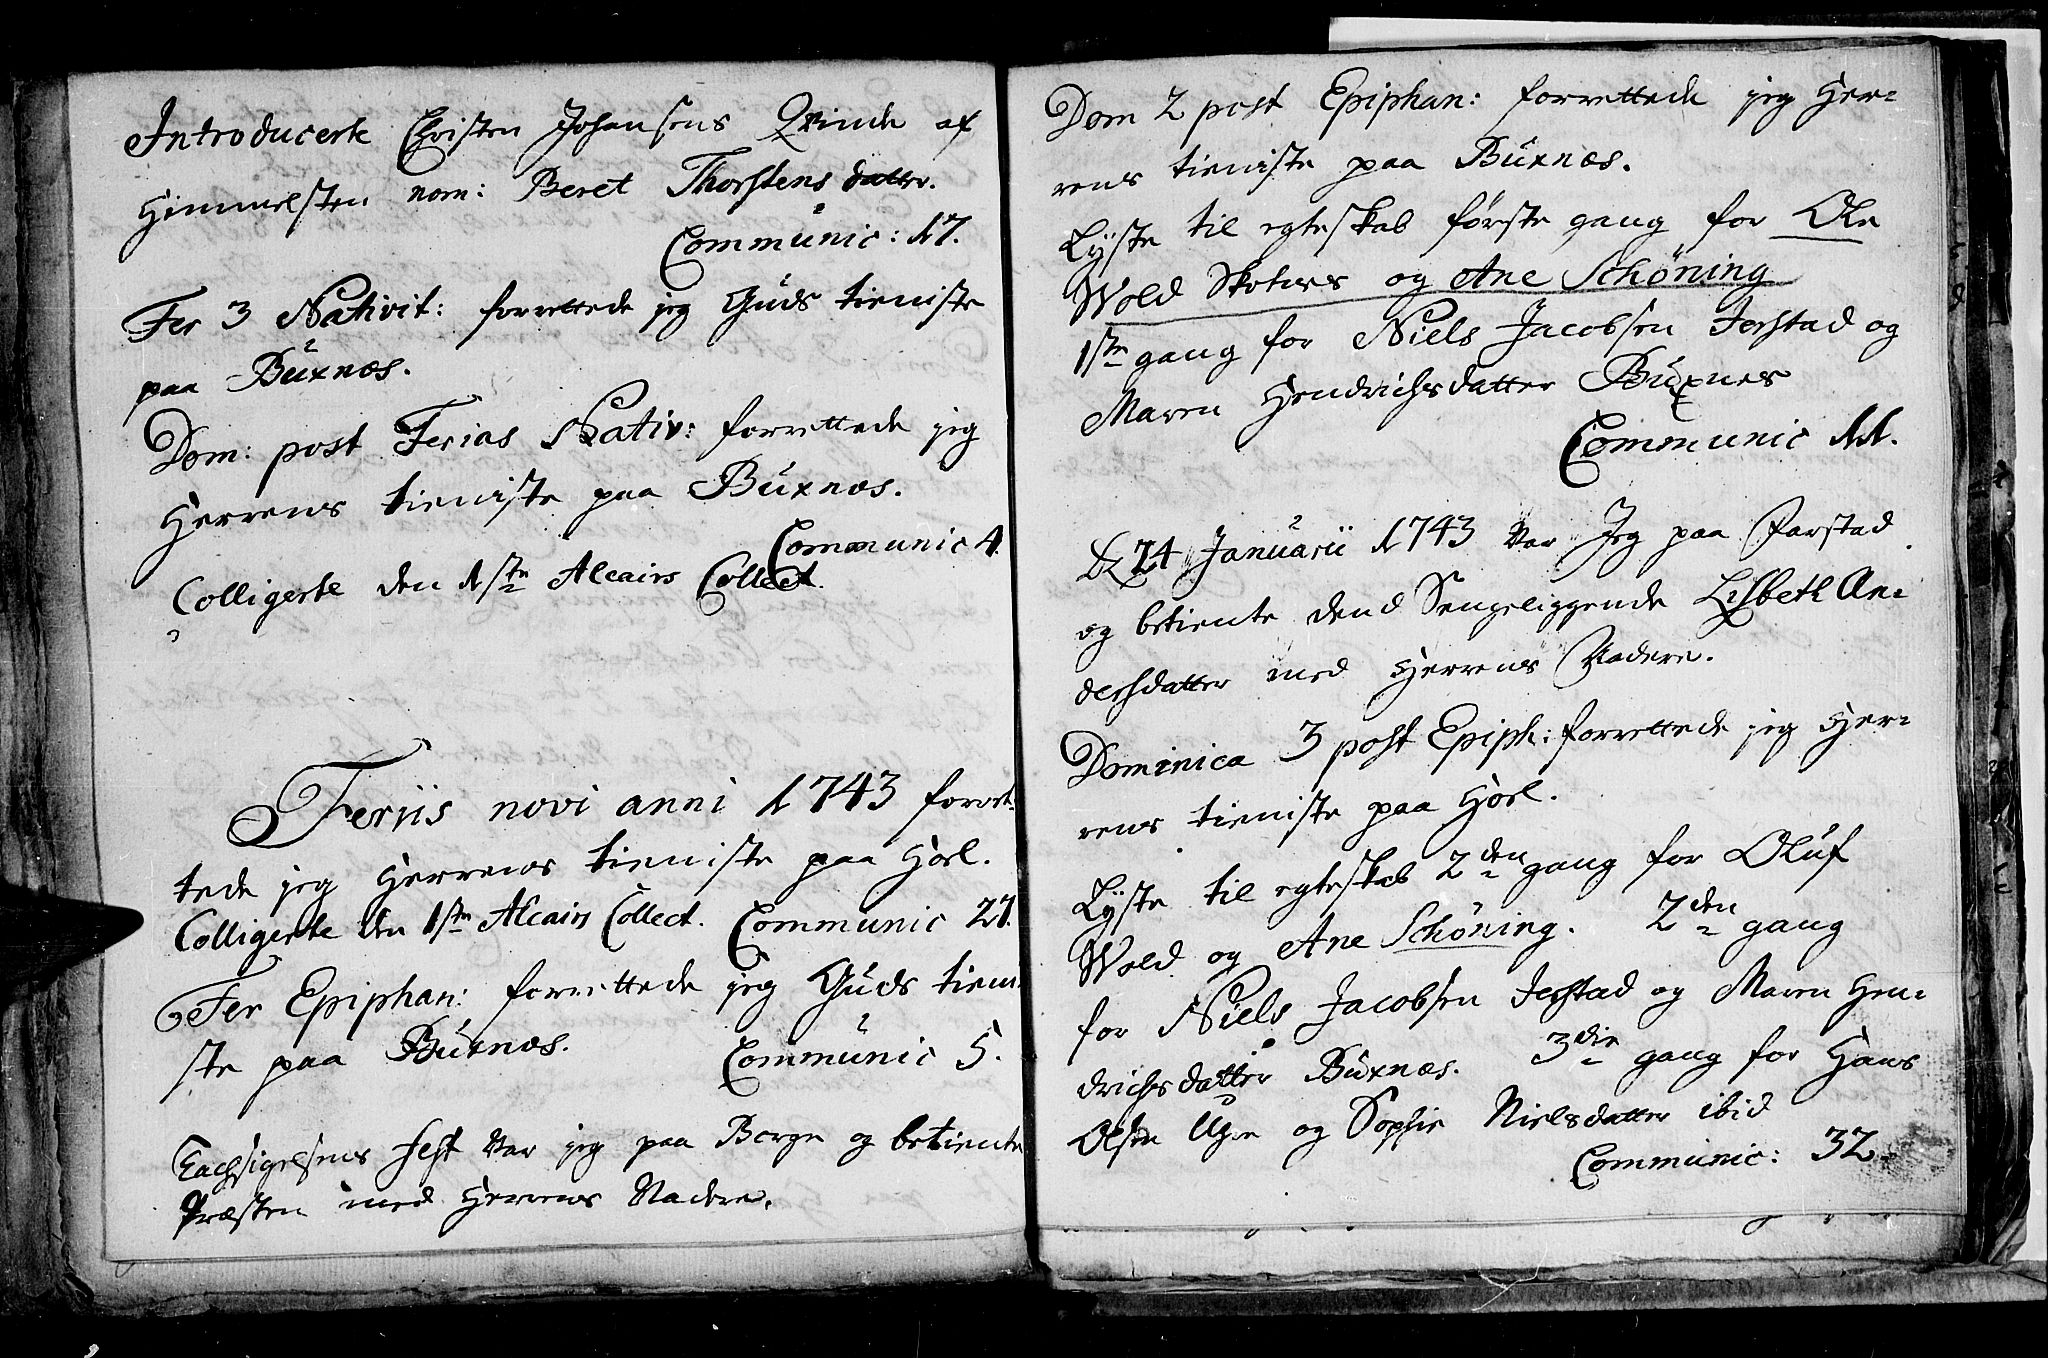 Introducerte Christen Johansens Qvinde af
Himmelsten nom: Beret Thorstens datter.
Communic: 17.
Fer 3 Nativit: forrettede jeg Guds tieniste
paa Buxnæs.
Dom: post Ferias Nativ: forrettede jeg
Herrens tieniste paa Buxnæs.
Communic 4.
Colligerte den 1ste Alcairs Collect.
Feriis novi anni 1743 forret-
tede jeg Herrens tieniste paa Hoel.
Colligerte den 1ste Alcairs Collect. Communic 27.
Fer Epiphan: forrettede jeg Guds tieni
ste paa Buxnæs. Communic 5.
Tachsigelsens fest var jeg paa Borge og betiente
Præsten med Herrens Nadere.
Dom 2 post Epiphan: forrettede jeg Her-
rens tieniste paa Buxnæs.
Lyste til egteskab første gang for Ole
Wold og Ane Schöning
1ste gang for Niels Jacobsen Jerstad og
Maren Hendrichsdatter Buxnes
Communic 11.
D 24 Januarii 1743 var Jeg paa Farstad
og betiente dend Sengeliggende Lisbeth An-
dersdatter med Herrens Nadere.
Dominica 3 post Epiph: forrettede jeg Her-
rens tieniste paa Hoel.
Lyste til egteskab 2den gang for Oluf
Wold og Ane Schöning. 2den gang
for Niels Jacobsen Jerstad og Maren Hen-
drichsdatter Buxnæs. 3die gang for Hans
Olsen Uge og Sophie Nielsdatter ibid
Communic: 32.